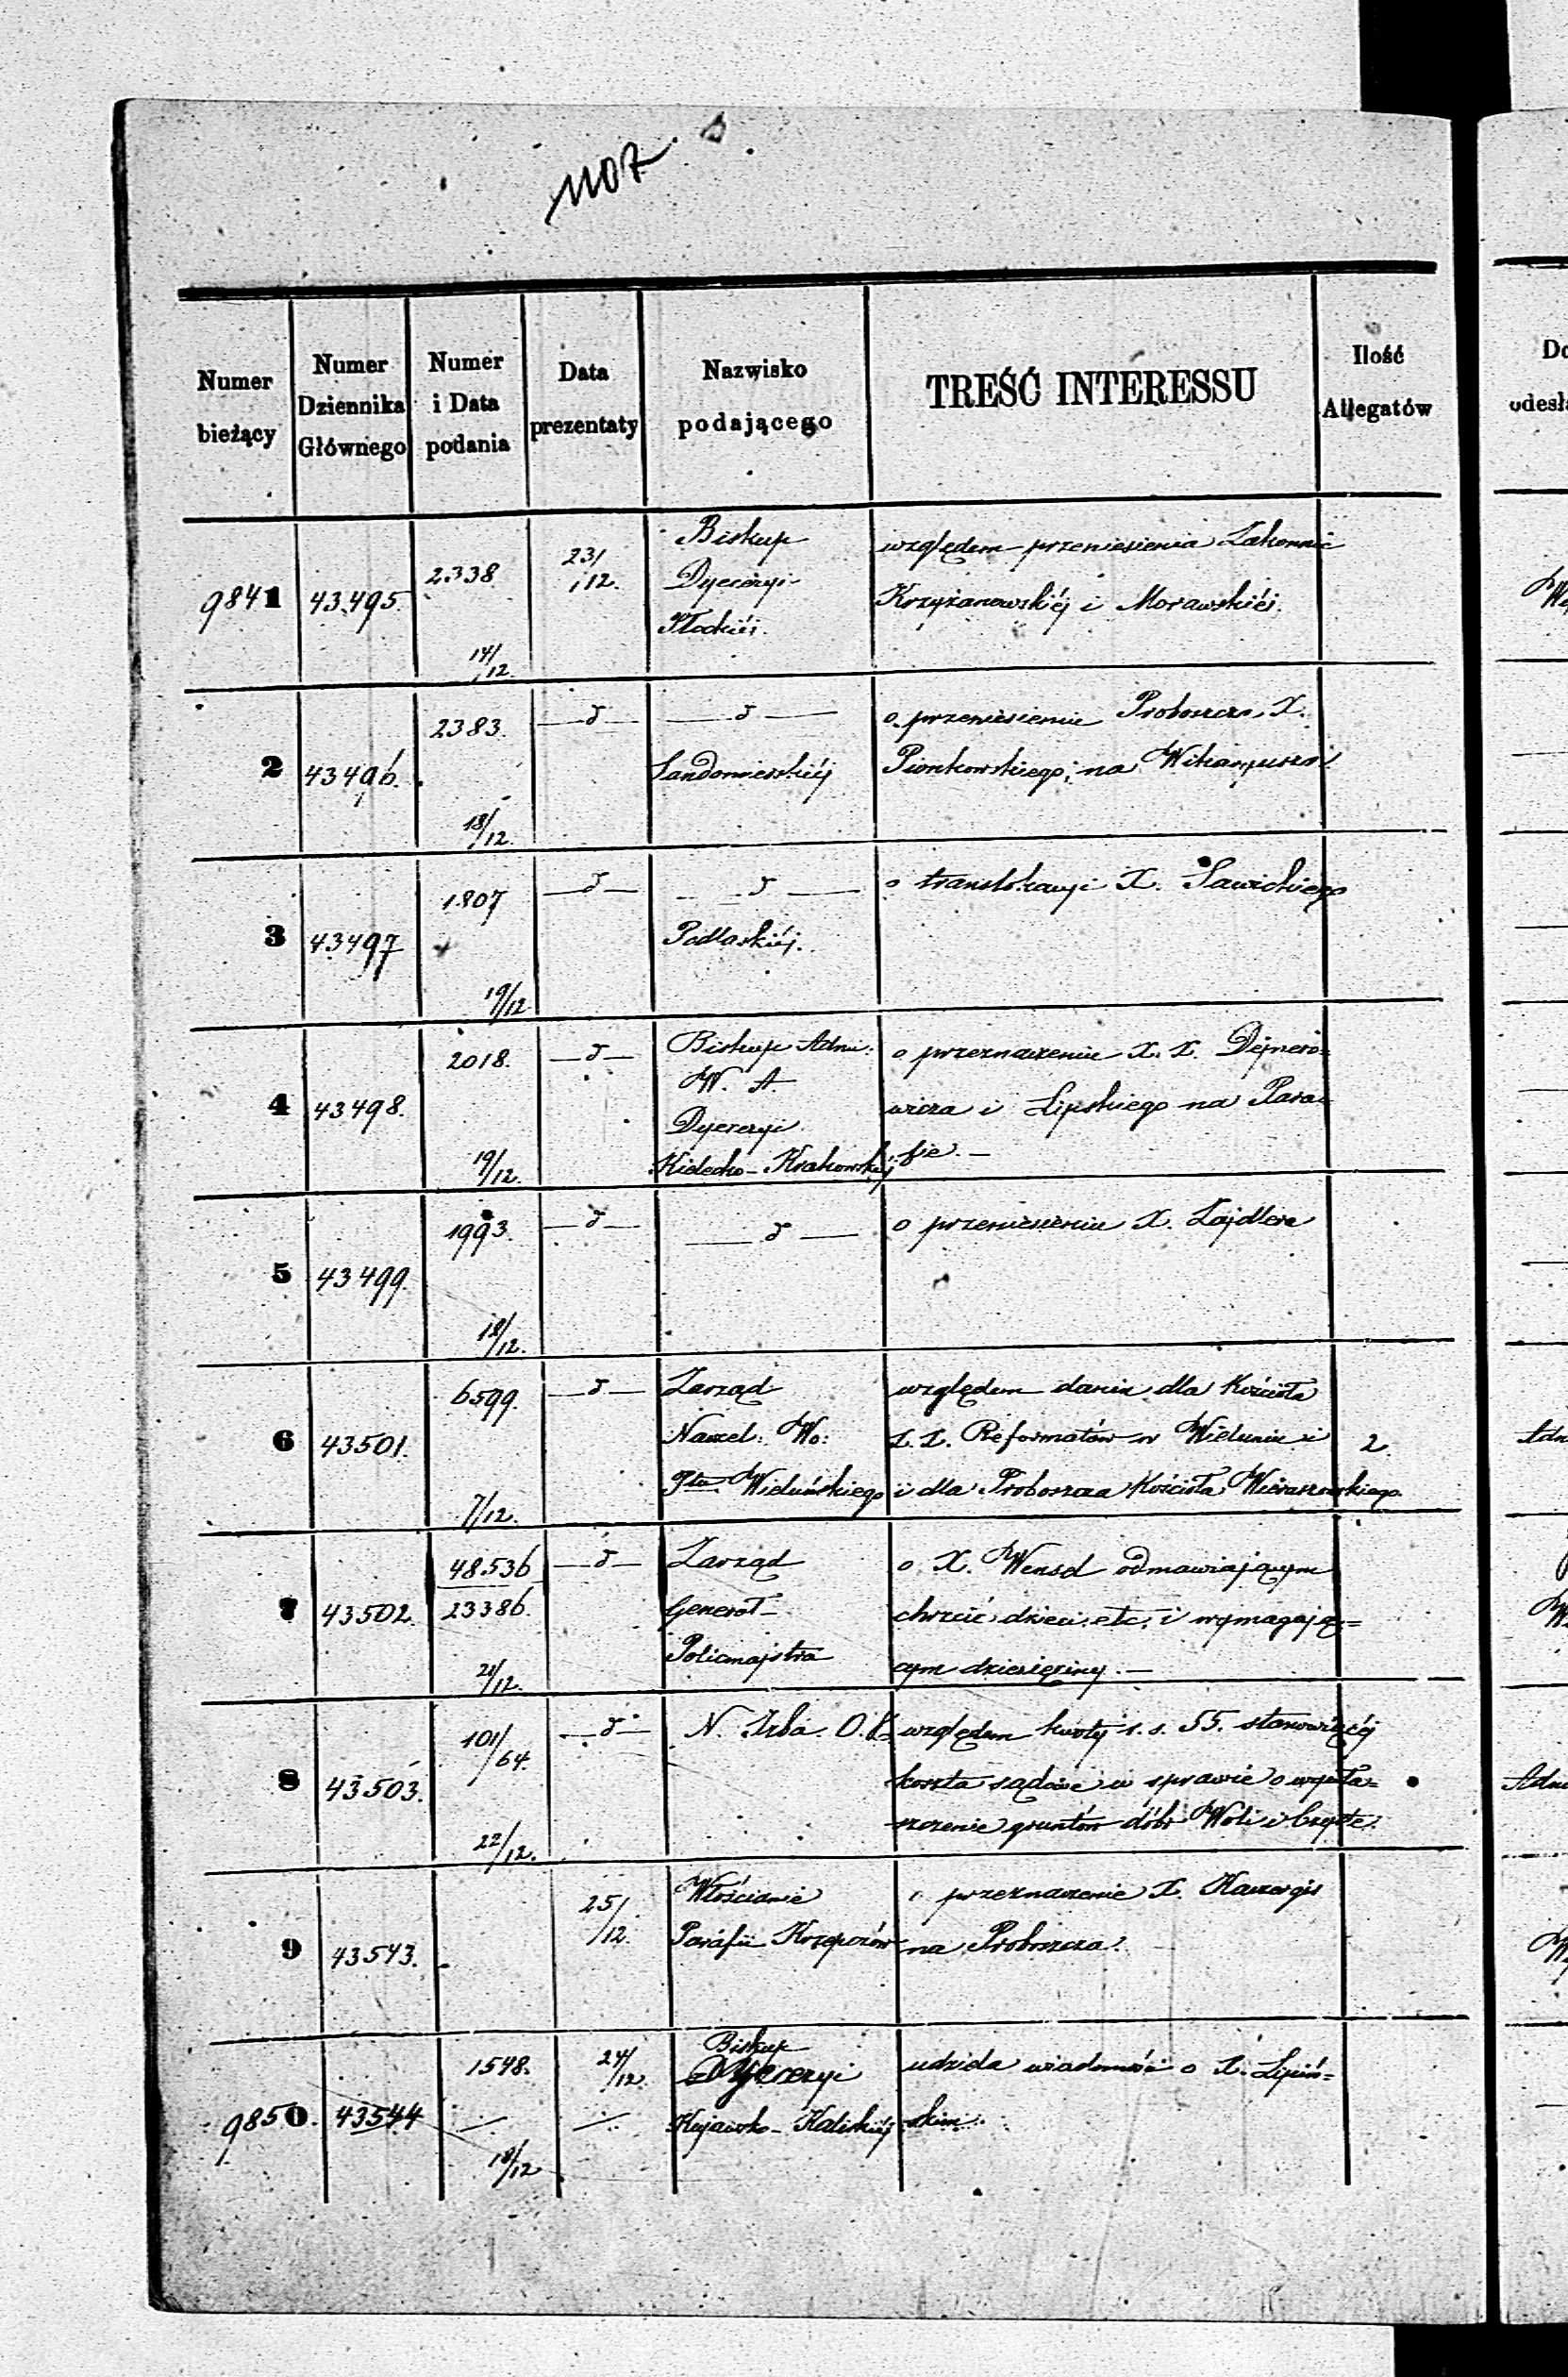 1107.
Numer bieżący
Numer Dziennika Głównego
Numer i Data podania
Data prezentaty
Nazwisko podającego
TREŚĆ INTERESSU
Ilość Allegatów
9841 43.495. 2338 14/12. 23/12. Biskup Dyecezyi Płockiéj. względem przeniesienia Zakonnic
Krzyżanowskiéj i Morawskiéj.
2 43496. 2383. 18/12. —d— —d— Sandomierskiéj o przeniesienie Proboszcza X.
Pionkowskiego, na
3 43497 1807 19/12 —d— —d— Podlaskiéj. o translokacyi X. Sawickiego
4 43498. 2018. 19/12. —d— Biskup Adm: W. A. Dyecezyi Kielecko-Krakowskiéj o przeznaczenie X. X.
wicza i Lipskiego na Para=
fie. —
5 43499. 1993. 18/12. —d— —d— o przeniesieniu X. Zajdlera
6 43501. 6599. 7/12. —d— Zarząd Naczel: Wo: Ptu Wieluńskiego względem dania dla Kościoła
X. X. Reformatów w Wieluniu i 2
i dla Proboszcza Kościoła
7 43502. 48.536 23386. 21/12. —d— Zarząd Generał- Policmajstra o X. Wensel odmawiającym
chrzcić dzieci etc. i wymagają=
cym dziesięciny. —
8 43503. 101/64. 22/12. —d— N. Izba O. względem kwoty r. s. 55. stanowiącéj
koszta sądowe w sprawie o wywła=
szczenie gruntów dóbr Woli
9 43543. 25/12. Włościanie Parafii Krzepczów o przeznaczenie X.
na Proboszcza.
9850. 43544 1548. 18/12 24/12. Biskup Dyecezyi Kujawsko-Kaliskiéj udziela wiadomości o X. Lipiń=
skim.
Do
odesła